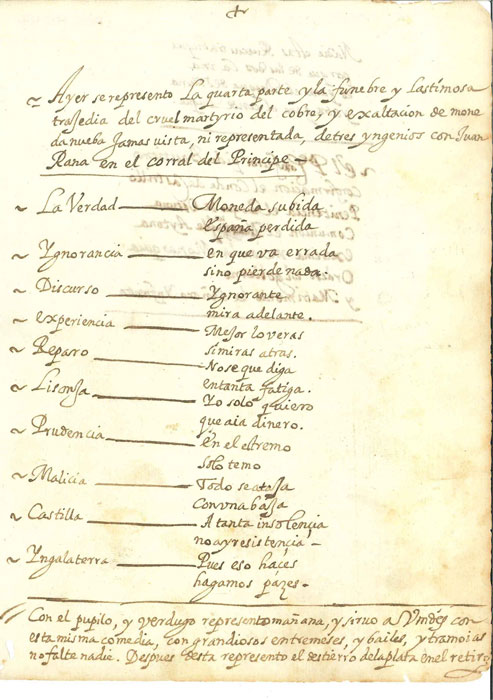 +
~ Ayer se represento La quarta parte y la funebre y Lastimosa
trajedia del cruel martyrio del cobre, y exaltacion de mone
da nueba Jamas uista, ni representada, de tres yngenios con Juan
Rana en el corral del Principe —
~ La Verdad — Moneda subida
España perdida
~ Ygnorancia — en que va errada
sino pierde nada.
~ Discurso — Ygnorante
mira adelante.
~ experiencia — Mejor lo veras
si miras atras.
~ Reparo — No se que diga
en tanta fatiga.
~ Lisonja — Yo solo quiero
que aia dinero.
~ Prudencia — En el estremo
solo temo
~ Malicia — Todo se ataja
con vna baja
~ Castilla — A tanta insolençia
no ay resistençia —
~ Yngalaterra — Pues eso haçes
hagamos pazes —
Con el pupilo, y verdugo represento mañana, y siruo a Vmdes con
esta misma comedia, con grandiosos entremeses, y bailes, y tramoias
no falte nadie. Despues desta represento el destierro de la plata en el retiro